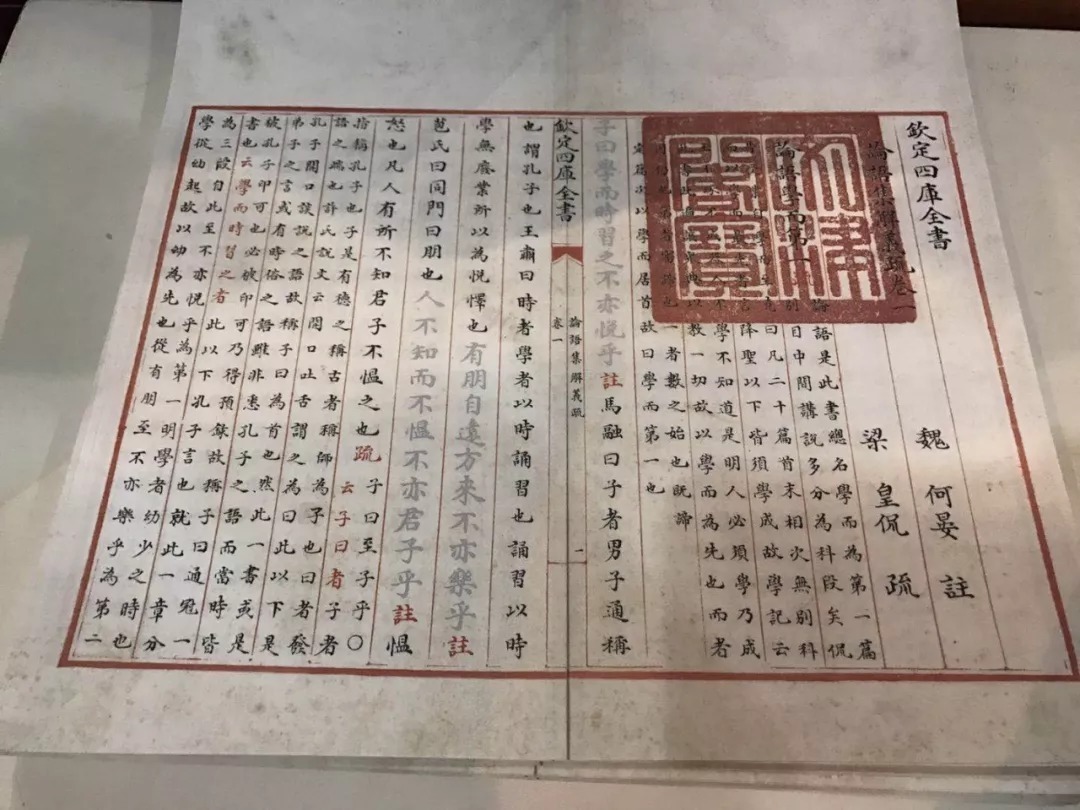 欽定四庫全書
論語集解義疏卷一
魏 何晏 註
梁 皇侃 疏
論語學而第一
論語是此書總名學而為第一篇
別目中間講說多分為科段矣侃
曰凡二十篇首末相次無別科
降聖以下皆須學成故學記云
學不知道是明人必須學乃成
教一切故以學而為先也而者
一者數之始也既諦
定篇次以學而居首故曰學而第一也
子曰學而時習之不亦悅乎註馬融曰子者男子通稱
欽定四庫全書
論語集解義疏
卷一
一
也謂孔子也王肅曰時者學者以時誦習也誦習以時
學無廢業所以為悅懌也有朋自遠方来不亦樂乎註
苞氏曰同門曰朋也人不知而不愠不亦君子乎註愠
怒也凡人有所不知君子不愠之也疏
子曰至子乎〇
云子曰者子者
指稱孔子也子是有德之稱古者稱師為子也曰者發
語之端也許氏說文云開口吐舌謂之為曰此以下是
孔子開口談說之語故稱子曰為首也然此一書或是
弟子之言或有時俗之語雖非悉孔子之語而當時皆
被孔子印可也必被印可乃得預錄故稱子曰通冠一
書也云學而時習之者此以下孔子言也就此一章分
為三段自此至不亦悅乎為第一明學者幼少之時也
學從幼起故以幼為先也從有朋至不亦樂乎為第二